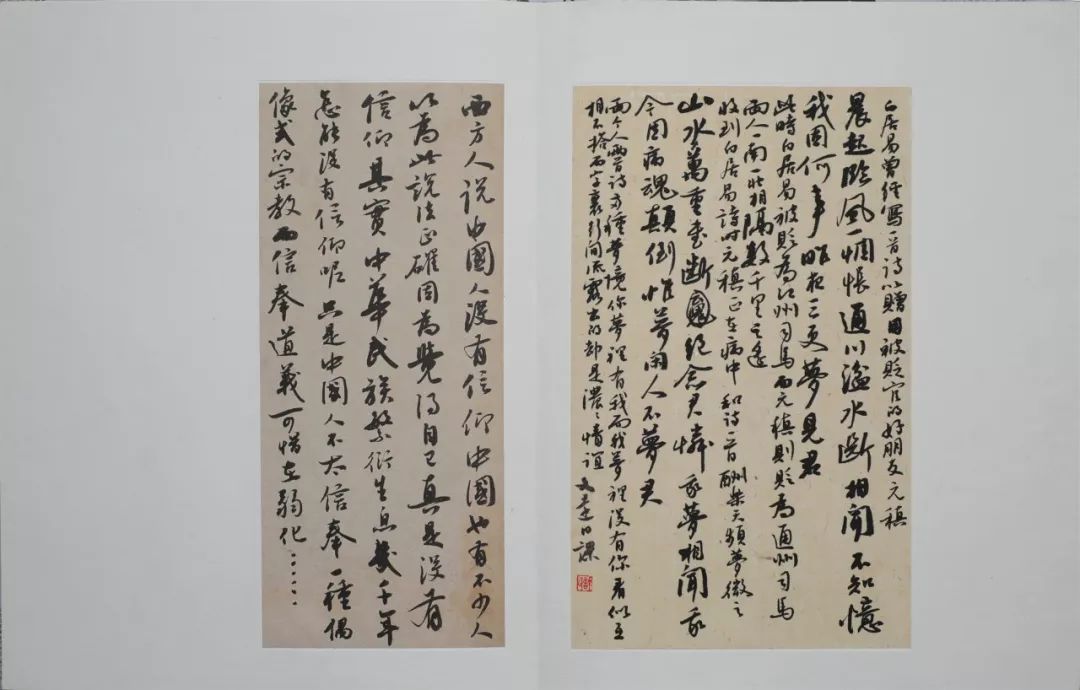 白居易曾經寫一首詩以贈因被貶官的好朋友元稹
晨起臨風一惆悵通川湓水斷相聞不知憶
我因何事昨夜三更夢見君
此時白居易被貶為江州司馬而元稹則貶為通州司馬
兩人一南一北相隔數千里之遙
收到白居易詩時元稹正在病中和詩一首酬樂天頻夢微之
山水萬重書斷絕念君憐我夢相聞我
今因病魂顛倒惟夢閑人不夢君
兩個人兩首詩兩種夢境你夢裡有我而我夢裡沒有你看似互
相不搭而字裏行間流露出的却是濃濃情誼 文達日課
西方人說中國人沒有信仰中國也有不少人
以為此說法正確因為覺得自己真是沒有
信仰其實中華民族繁衍生息幾千年
怎能沒有信仰呢只是中國人不太信奉一種偶
像式的宗教而信奉道義可惜在弱化……